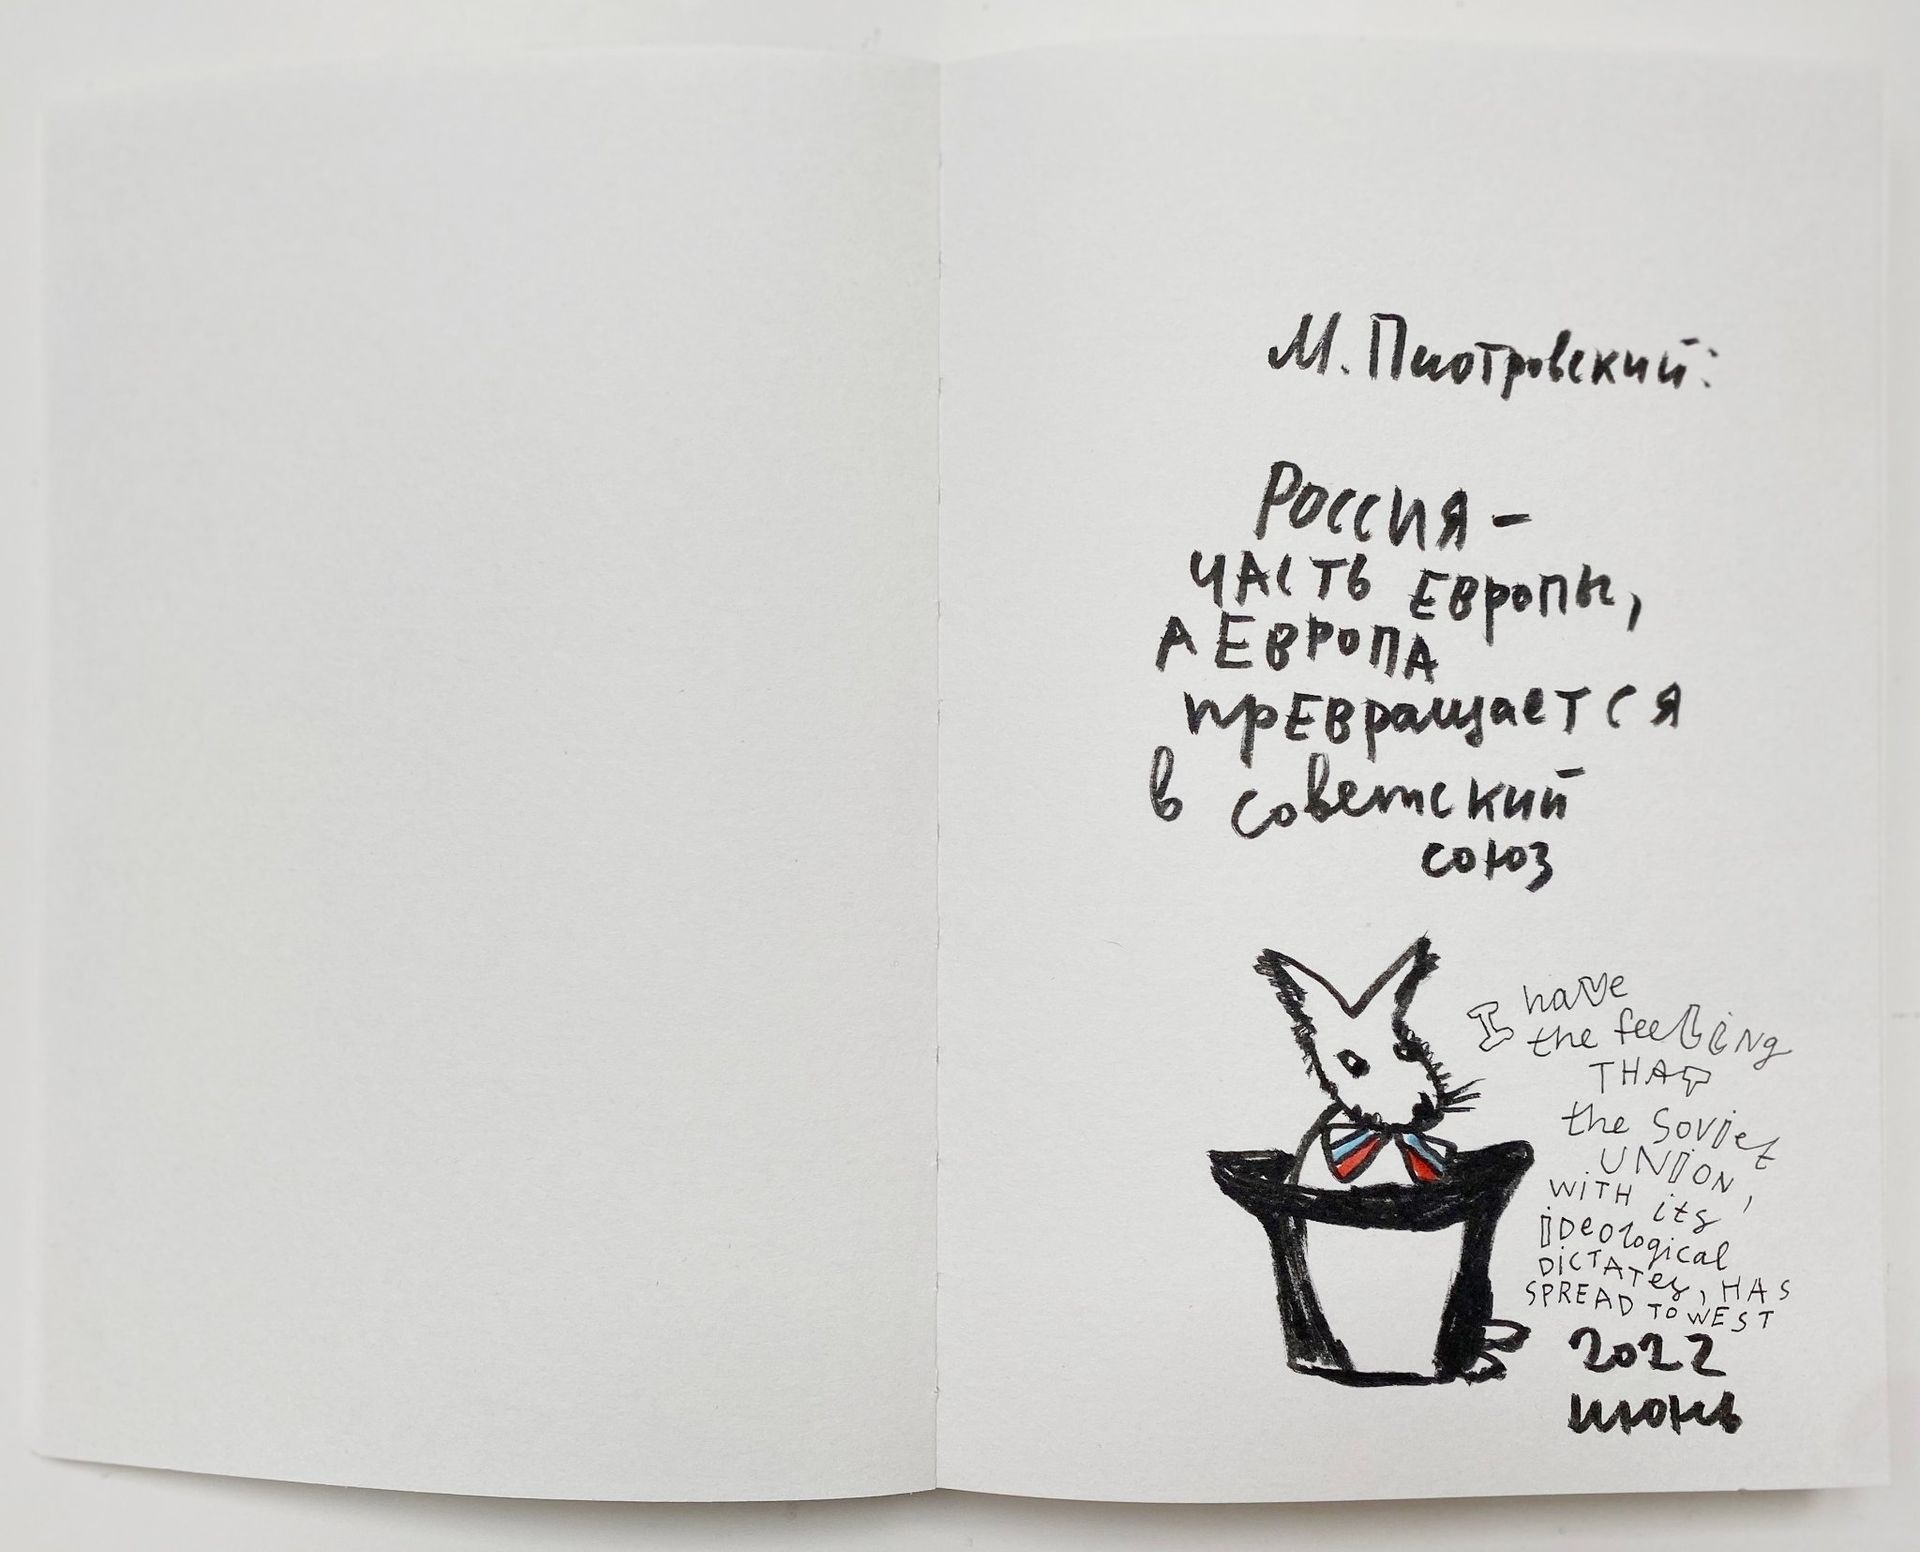 М. Пиотровский:
Россия -
часть Европы,
а Европа
превращается
в советский
союз
I have
the feeling
THAT
the Soviet
UNION,
WITH its
iDeological
DICTATes, HAS
SPREAD TO WEST
2022
июнь